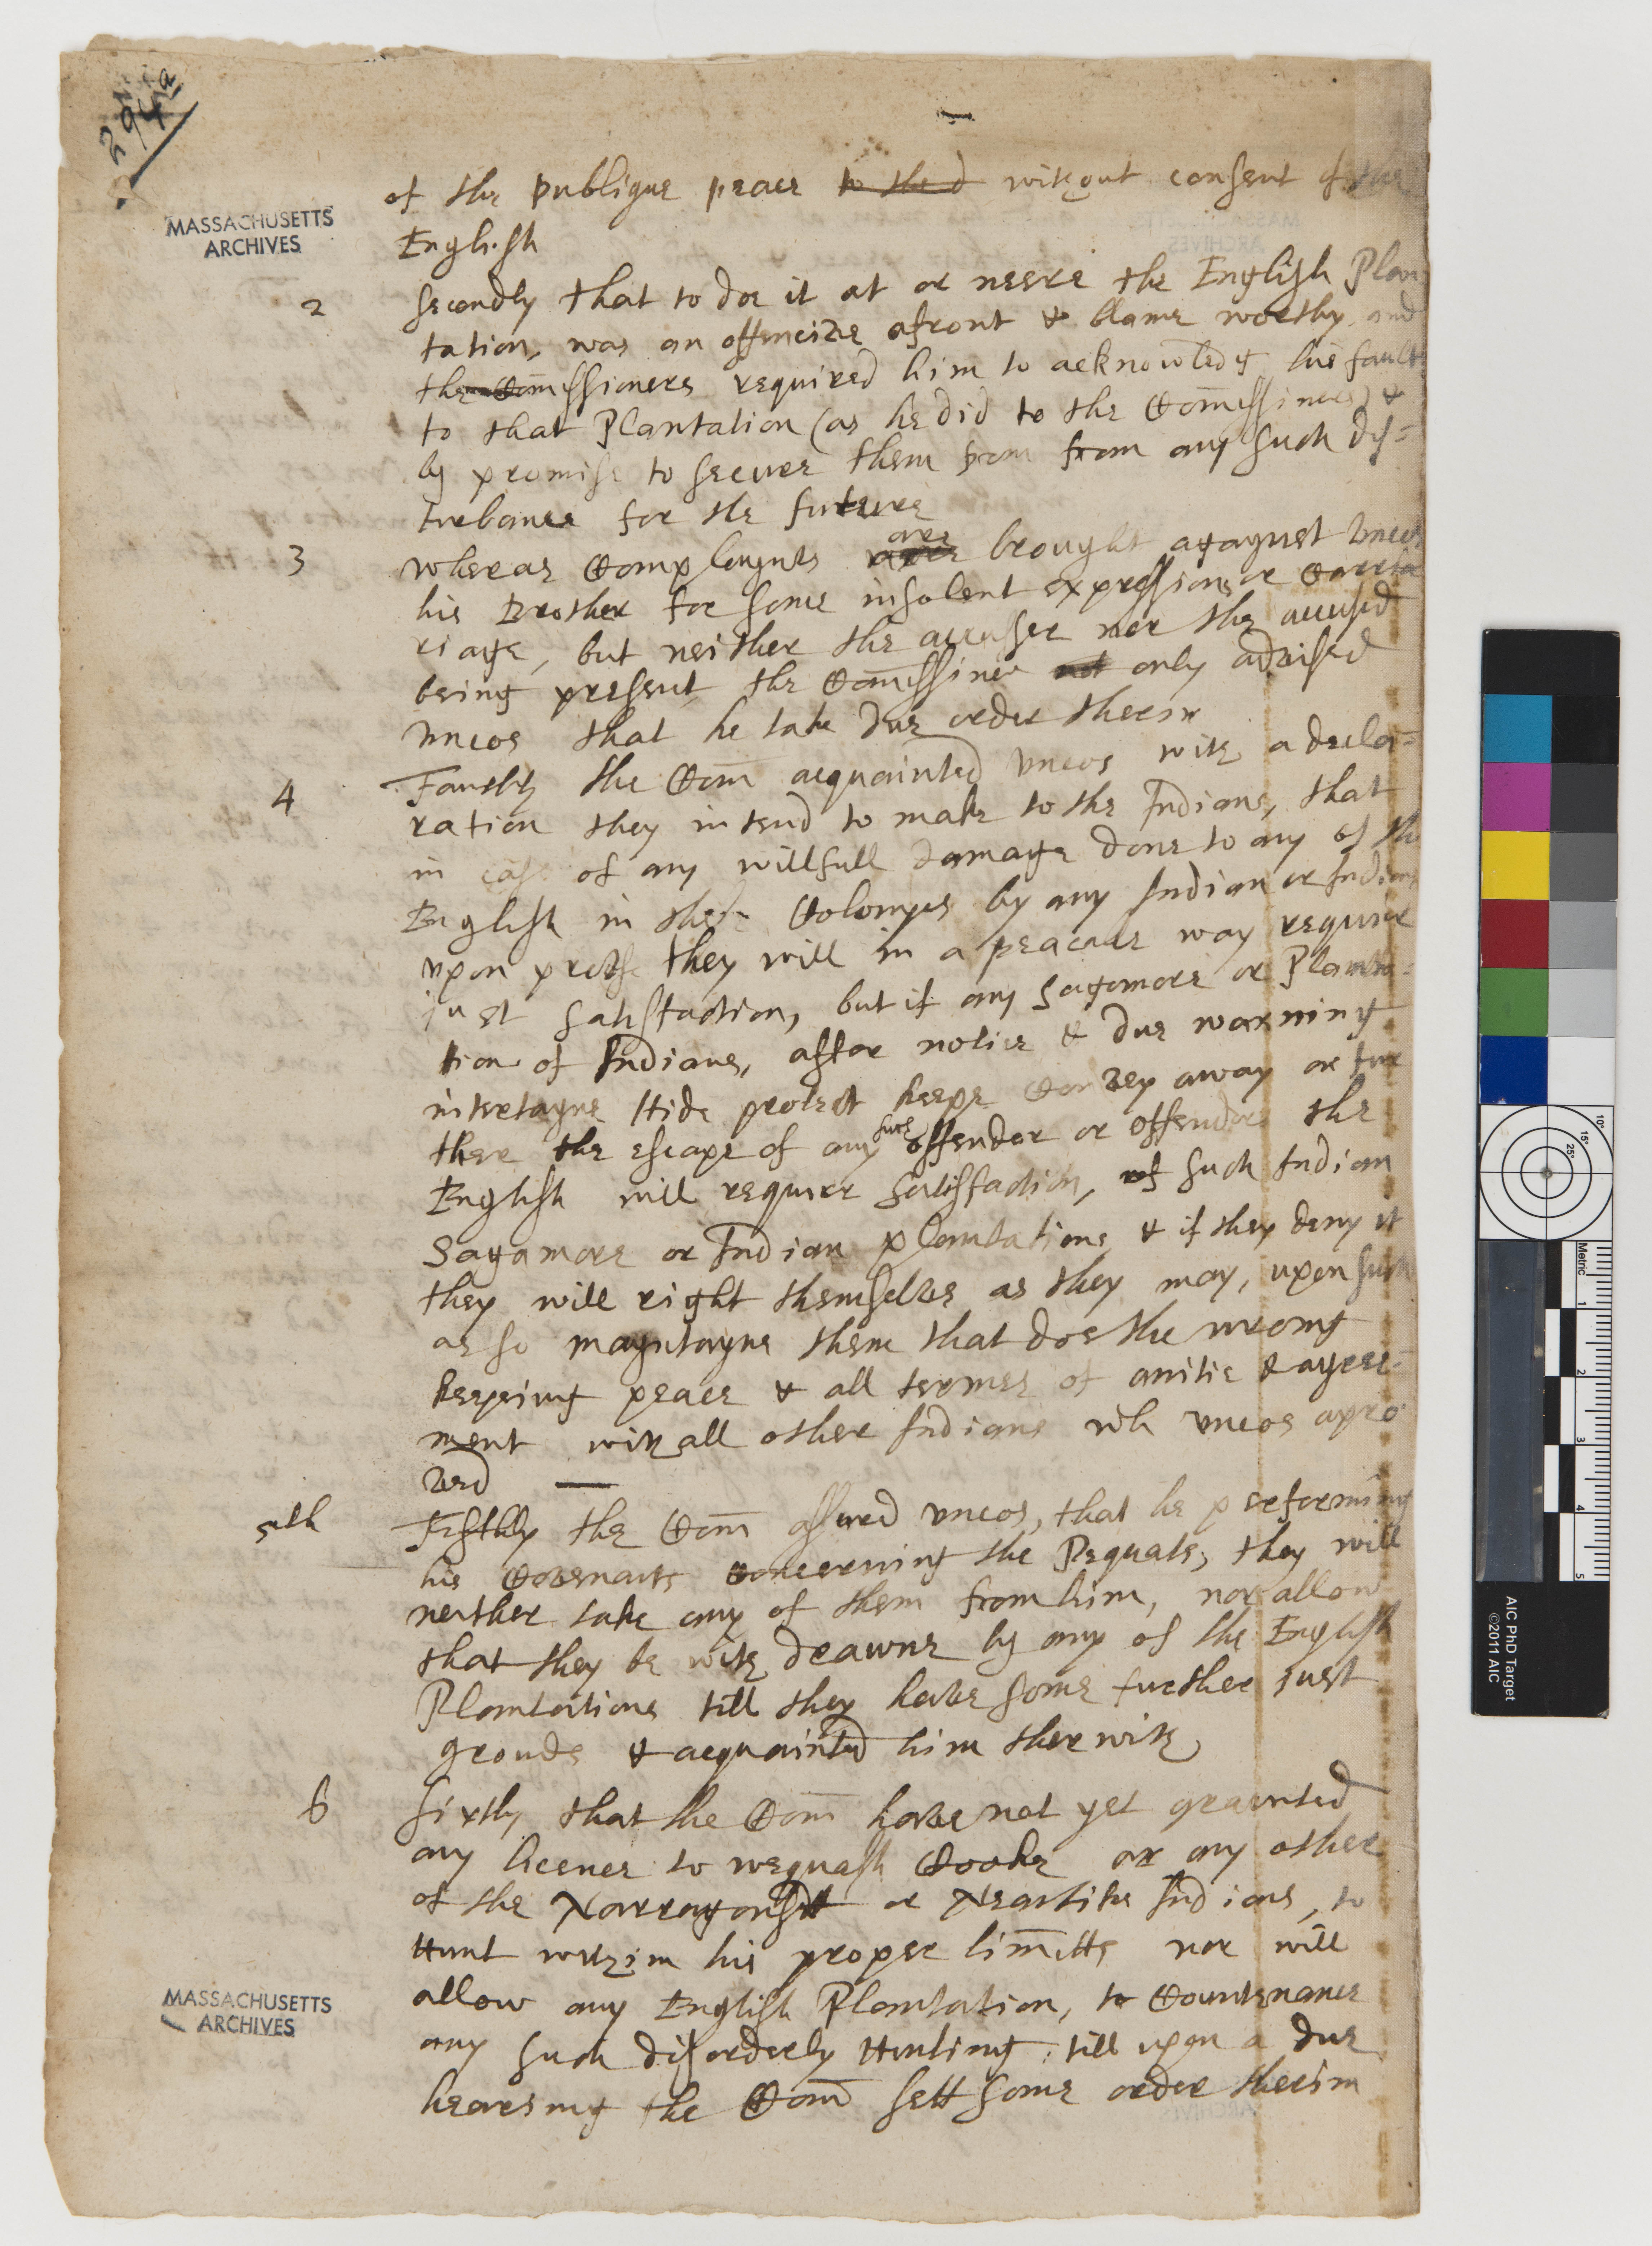 294a
MASSACHUSETTS
ARCHIVES
of the publique peace to the d without consent of the
English
2 secondly that to doe it at or neere the English Plan
tation, was an offencive afront & blame worthy and
the Comissioners required him to acknowledg his fault
to that Plantation (as he did to the Comissiners) &
by promise to secure them from from any such dis=
turbance for the future
3 whereas Complaynts are brought agaynst Uncus
his Brother for some insolent expressions or Carria
riage, but neither the accuser nor the accused
being present, the Comissiner not only advised
uncos that he take due order therin
4 Fourthly the Com acquainted uncos with a decla=
ration they intend to make to the Indians, that
in case of any willfull damage done to any of the
English in these Colonyes by any Indian or Indians
upon proofe they will in a peacable way require
just satisfaction, but if any Sagamore or Planta=
tion of Indians, after notice & due warning
intertayne Hide protect keepe Convey away or fur
ther the escape of any such offender or offendors the
English will require satisfaction, of such Indian
Sagamore or Indian plantations & if they deny it
they will right themselves as they may, upon such
as so mayntayne them that doe the wrong
keepeing peace & all termes of amitie & agree=
ment with all other Indians wh uncos apro
ved
5th Fifthly the Com assured uncos, that he preforming
his Covenants Concerning the Pequats, they will
neither take any of them from him, nor allow
that they be with drawne by any of the English
Plantations till they have some further just
grouds & acquainted him therwith
6 sixthly that the Com have not yet graunted
any licence to wequash Cooke or any other
of the Narragansett or Neantike Indians, to
Hunt within his proper limitts nor will
allow any English Plantation, to Countenance
any such disorderly Hunting, till upon a due
heareing the Com sett some order therin
MASSACHUSETTS
ARCHIVES
10°
15°
25°
Metric
1
2
3
4
5
AIC PhD Target
©2011 AIC